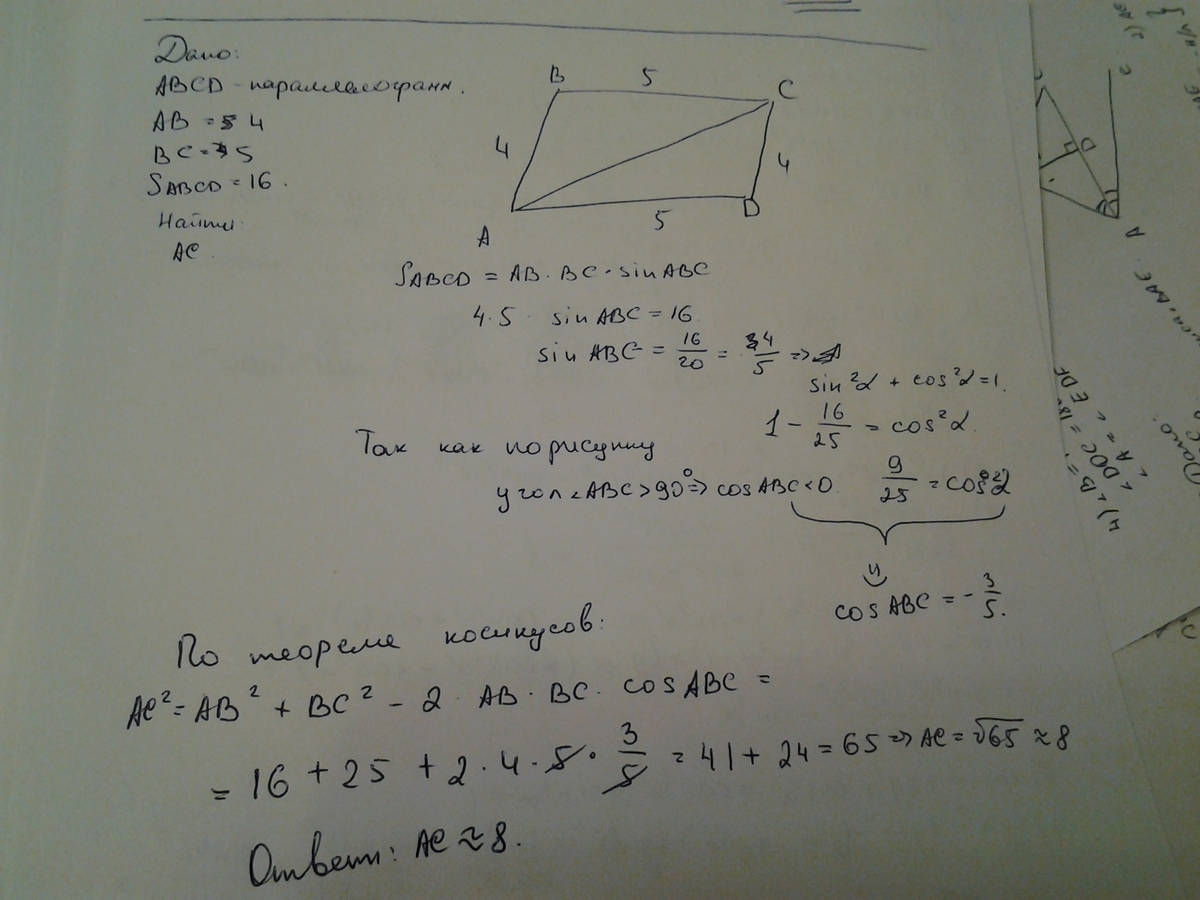 Дано:
ABCD - параллелограмм.
AB = 4
BC = 5
SABCD = 16.
Найти:
AC.
B 5 C
4 4
A 5 D
SABCD = AB · BC · sin ABC
4·5 · sin ABC = 16
sin ABC = 16/20 = 4/5 =>
sin²α + cos²α = 1.
1 - 16/25 = cos²α
Так как по рисунку
угол ∠ABC > 90° => cos ABC < 0. 9/25 = cos²α
cos ABC = - 3/5.
По теореме косинусов:
AC² = AB² + BC² - 2 · AB · BC · cos ABC =
= 16 + 25 + 2 · 4 · 5 · 3/5 = 41 + 24 = 65 => AC = √65 ≈ 8
Ответ: AC ≈ 8.
C
D
A
EDF
Дано: